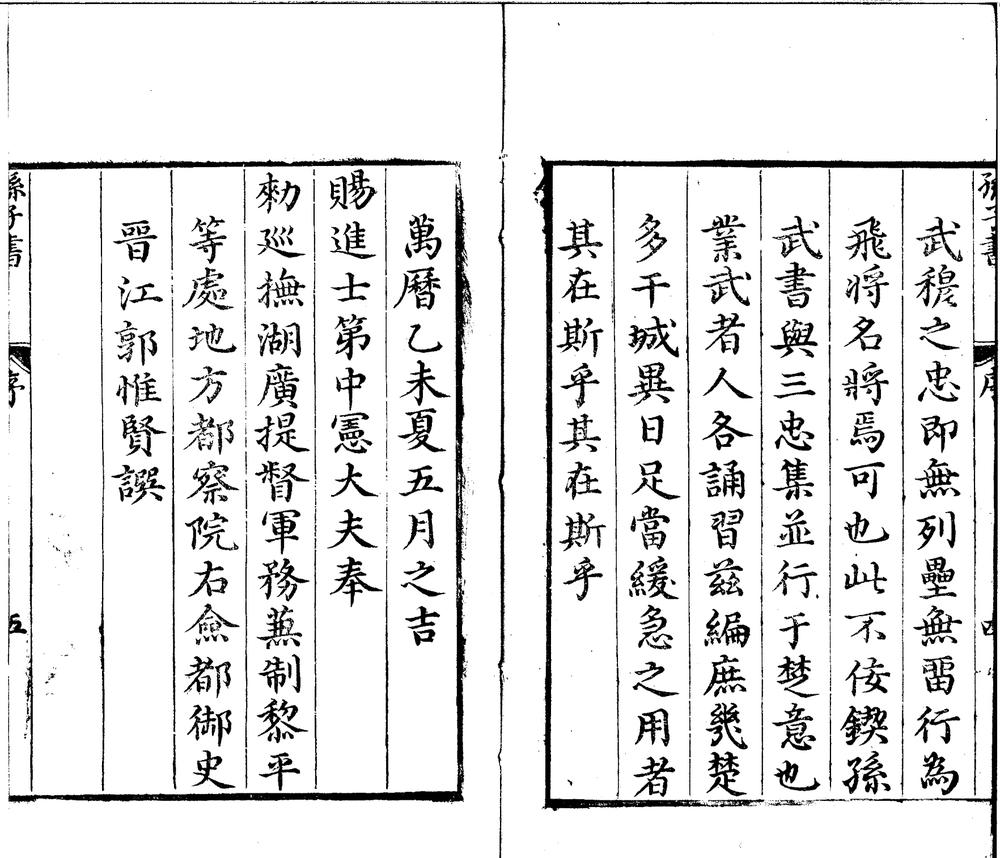 武穆之忠即無列壘無畱行為
飛將名將焉可也此不佞鍥孫
武書與三忠集並行于楚意也
業武者人各誦習茲編庶幾楚
多干城異日足當緩急之用者
其在斯乎其在斯乎
萬曆乙未夏五月之吉
賜進士第中憲大夫奉
勑巡撫湖廣提督軍務蒹制黎平
等處地方都察院右僉都御史
晉江郭惟賢譔
孫子書
序
五